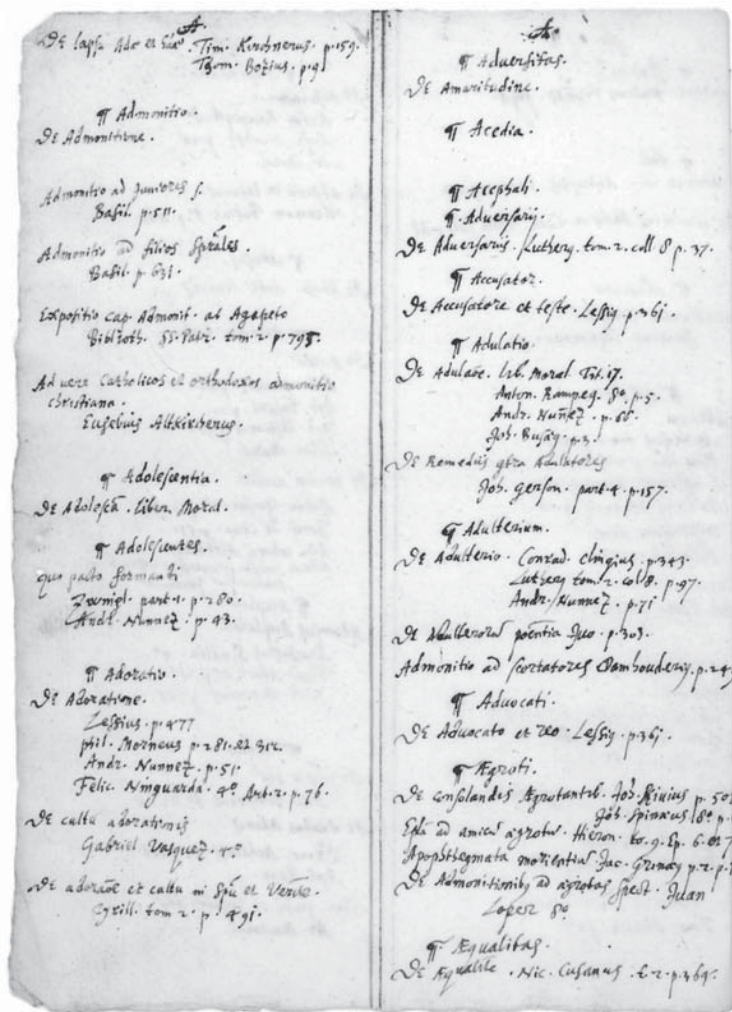 A.
De lapsu Adæ et Evæ. Tim. Kirchnerus. p. 159.
Thom. Bozius. p. 9.
¶ Admonitio.
De Admonitione.
Admonitio ad Juniores s.
Basil. p. 511.
Admonitio ad filios Sprales.
Basil. p. 631.
Expositio cap. Admonit. ab Agapeto
Biblioth. SS. Patr. tom. 2. p. 795.
Ad vere Catholicos et orthodoxos admonitio
christiana.
Eusebius Altkircherus.
¶ Adolescentia.
De Adolescã. Liber Moral.
¶ Adolescentes.
quo pacto formanti
Zwingl. part. 1. p. 280.
Andr. Nunnez. p. 43.
¶ Adoratio.
De Adoratione.
Lessius. p. 477
phil. Morneus p. 281. et 312.
Andr. Nunnez. p. 51.
Felic. Ninguarda. 4º. Art. 2. p. 76.
De cultu adorationis
Gabriel Vasquez. 4º.
De adorãoe et cultu in Spũ et Verite.
Cyrill. tom 2. p. 491.
A.
¶ Adversitas.
De Amaritudine.
¶ Acedia.
¶ Acephali.
¶ Adversarij.
De Adversariis. Luther9. tom. 2. coll. 8 p. 37.
¶ Accusator.
De Accusatore et teste. Lessi9. p. 361.
¶ Adulatio.
De Adulãoe. Lib. Moral. Tit. 17.
Anton. Rampeg. 8º. p. 5.
Andr. Nuñez. p. 66.
Joh. Busæ9. p. 3.
De Remediis cõtra Adulatores
Joh. Gerson. part. 4. p. 157.
¶ Adulterium.
De Adulterio. Conrad. Clingius. p. 343.
Luther9 tom. 2. col. 8. p. 97.
Andr. Nunnez. p. 71
De Adulterorũ poentia Ivo. p. 303.
Admonitio ad scortatores Damhouderi9. p. 24
¶ Advocati.
De Advocato et reo. Lessi9. p. 361.
¶ Ægroti.
De consolandis Ægrotantib. Joh. Rivius p. 50
Joh. Spinæus 8º p.
Epla ad amicũ ægrotũ. Hieron. to. 9. Ep. 6. et 7
Apophthegmata morientiũ Jac. Grinæ9 p. 2. p.
De Admonitionib9 ad ægrotos spect. Juan
Lopez 8º
¶ Æqualitas.
De Æqualite. Nic. Cusanus. t. 2. p. 369.